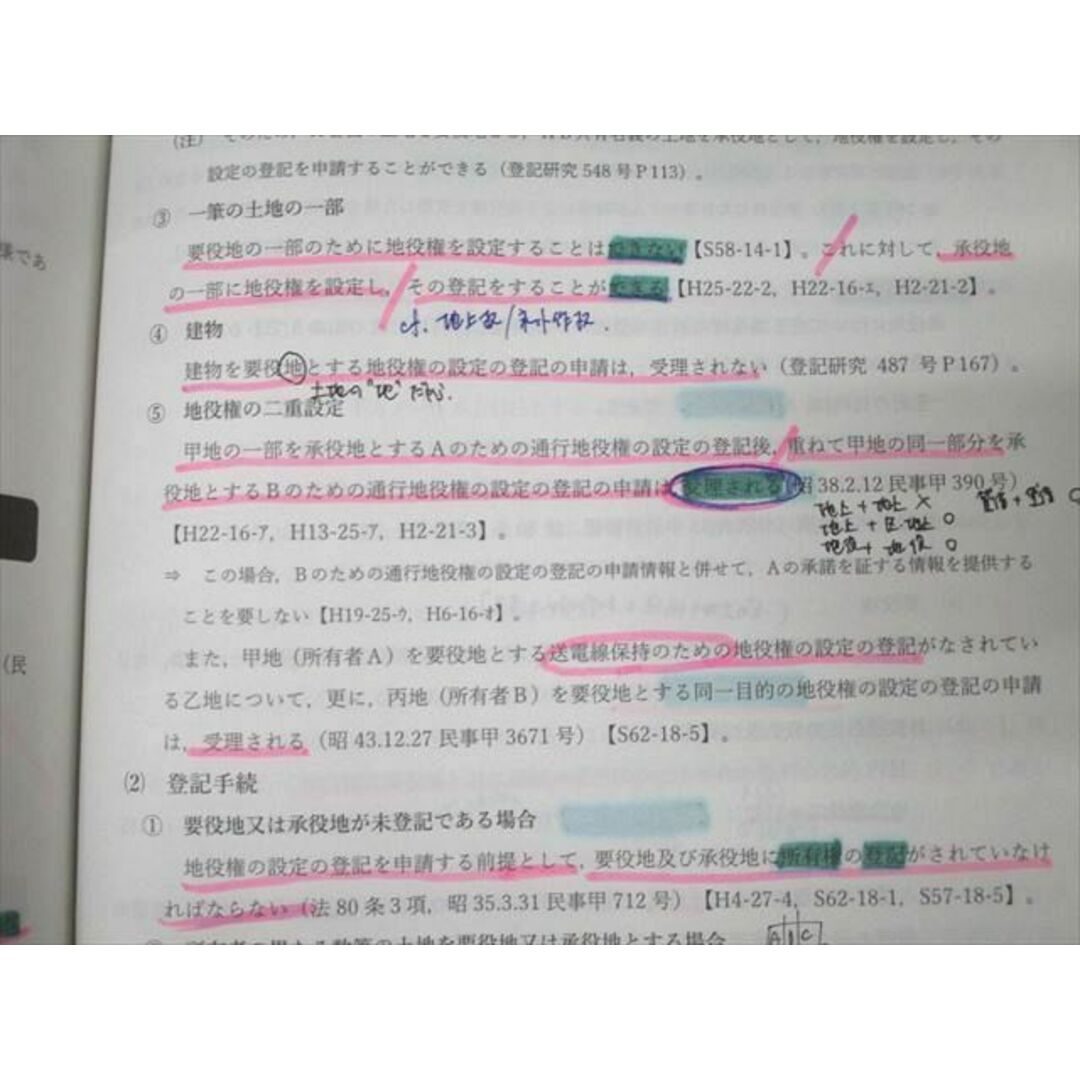 設定の登記を申請することができる（登記研究548号P113）。
③　一筆の土地の一部
要役地の一部のために地役権を設定することはできない【S58-14-1】。これに対して，承役地
の一部に地役権を設定し，その登記をすることができる【H25-22-2，H22-16-ｴ，H2-21-2】。
④　建物
cf. 地上权/永小作权.
建物を要役地とする地役権の設定の登記の申請は，受理されない（登記研究 487 号P167）。
土地の"地"だから.
⑤　地役権の二重設定
甲地の一部を承役地とするAのための通行地役権の設定の登記後，重ねて甲地の同一部分を承
役地とするBのための通行地役権の設定の登記の申請は，受理される（昭 38.2.12 民事甲 390 号）
【H22-16-ｱ，H13-25-ｱ，H2-21-3】。
地上+地上 ×
地上+区地上 ○
地役+地役 ○
⇒　この場合，Bのための通行地役権の設定の登記の申請情報と併せて，Aの承諾を証する情報を提供する
ことを要しない【H19-25-ｳ，H6-16-ｵ】。
また，甲地（所有者A）を要役地とする送電線保持のための地役権の設定の登記がなされてい
る乙地について，更に，丙地（所有者B）を要役地とする同一目的の地役権の設定の登記の申請
は，受理される（昭 43.12.27 民事甲 3671 号）【S62-18-5】。
(2)　登記手続
①　要役地又は承役地が未登記である場合
地役権の設定の登記を申請する前提として，要役地及び承役地に所有権の登記がされていなけ
ればならない（法 80 条 3 項，昭 35.3.31 民事甲 712 号）【H4-27-4，S62-18-1，S57-18-5】。
所有者の異なる数筆の土地を要役地又は承役地とする場合
A B C
（民